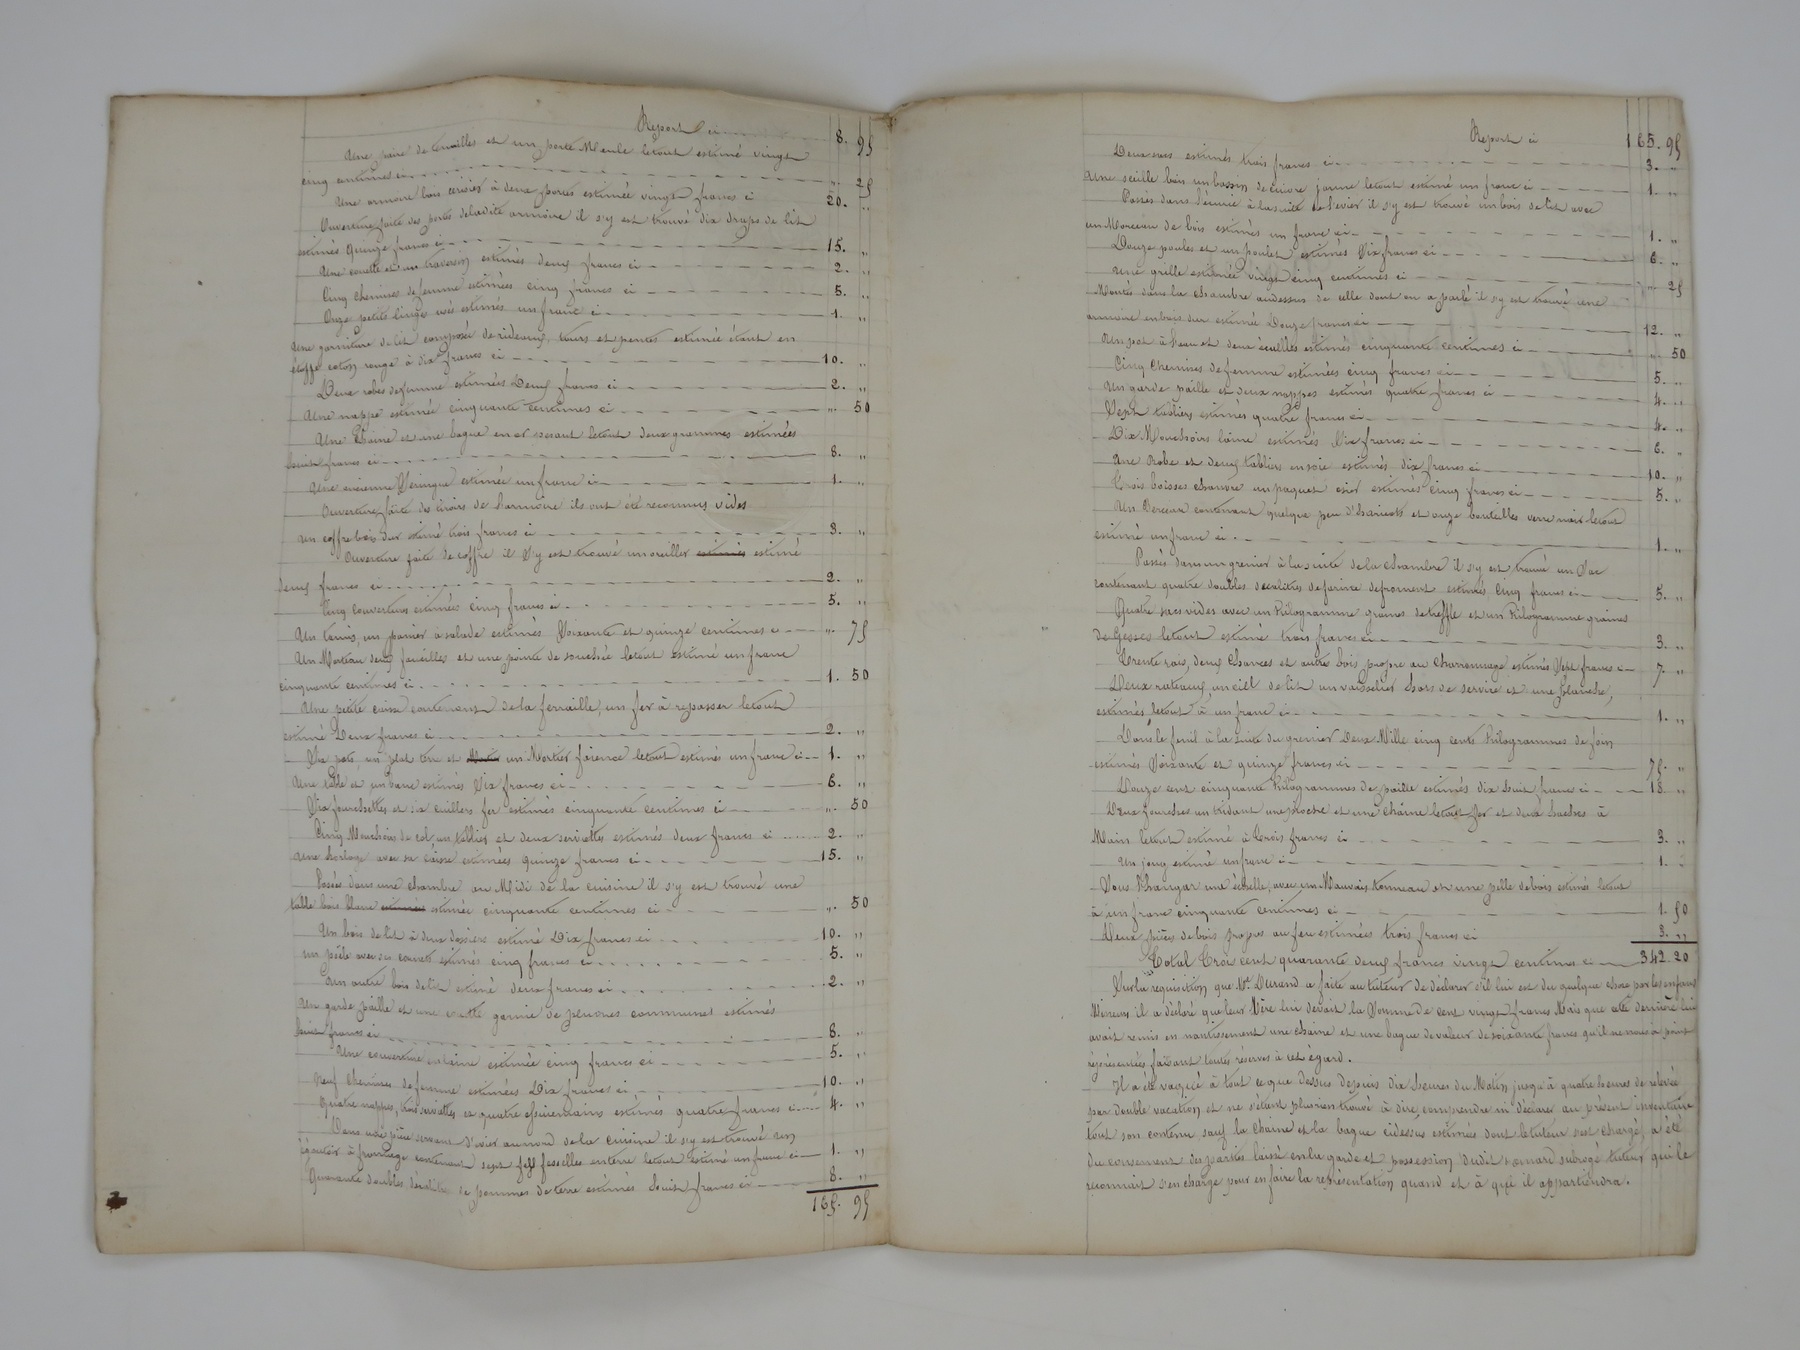 Report ci 8. 95
Une paire de tenailles et un porte Meule letout estimé vingt
cinq centimes ci " 25
Une armoire bois cerisier à deux portes estimée vingt francs ci 20. "
Ouverture faite des portes deladite armoire il s'y est trouvé dix draps de lit
estimés quinze francs ci 15. "
Une couette et un traversin estimés deux francs ci 2. "
Cinq chemises de femme estimées cinq francs ci 5. "
Onze petits linges usés estimés un franc ci 1. "
Une garniture de lit composée de rideaux, tours et pentes estimée étant en
étoffe coton rouge à dix francs ci 10. "
Deux robes defemme estimées Deux francs ci 2. "
Une nappe estimée cinquante centimes ci " 50
Une Chaine et une bague en or pesant letout deux grammes estimées
huit francs ci 8. "
Une ancienne Seringue estimée un franc ci 1. "
Ouverture faite des tiroirs de l'armoire ils ont été reconnus vides
un coffre bois dur estimé trois francs ci 3. "
Ouverture faite de coffre il s'y est trouvé un oreiller estimé
deux francs ci 2. "
Cinq couvertures estimées cinq francs ci 5. "
Un tamis, un panier à salade estimés Soixante et quinze centimes ci " 75
Un Marteau deux faucilles et une pointe de letout estimé un franc
cinquante centimes ci 1. 50
Une petite caisse contenant de la ferraille, un fer à repasser letout
estimé Deux francs ci 2. "
Six pots, un plat terre et un Mortier faïence letout estimés un franc ci 1. "
Une et un estimés Six francs ci 6. "
Six fourchettes et six cuillers fer estimés cinquante centimes ci " 50
Cinq Mouchoirs de col, un tablier et deux serviettes estimés deux francs ci 2. "
Une horloge avec sa caisse estimées quinze francs ci 15. "
Passés dans une chambre au Midi de la cuisine il s'y est trouvé une
table bois blanc estimée cinquante centimes ci " 50
Un bois de lit à deux dossiers estimé Dix francs ci 10. "
un poële avec ses cornets estimés cinq francs ci 5. "
Un autre bois de lit estimé deux francs ci 2. "
Un garde paille et une couette garnie de plumes communes estimés
huit francs ci 8. "
Une couverture en laine estimée cinq francs ci 5. "
Neuf chemises de femme estimées Dix francs ci 10. "
Quatre nappes, trois serviettes et quatre essuiemains estimés quatre francs ci 4. "
Dans une pièce servant d'évier au nord de la cuisine il s'y est trouvé un
égoutier à fromage contenant sept fesselles en terre letout estimé un franc ci 1. "
Quarante doubles décalitres de pommes de terre estimés huit francs ci 8. "
165. 95
Report ci 165. 95
Deux sacs estimés trois francs ci 3. "
Une seille bois un bassin de cuivre jaune letout estimé un franc ci 1. "
Passés dans à la suite de l'évier il s'y est trouvé un bois de lit avec
un Morceau de bois estimés un franc ci 1. "
Douze poules et un poulet estimés Six francs ci 6. "
Une grille estimée vingt cinq centimes ci " 25
Montés dans la chambre audessus de celle dont on a parlé il s'y est trouvé une
armoire en bois dur estimée Douze francs ci 12. "
Un pot à l'eau et deux écuelles estimés cinquante centimes ci " 50
Cinq Chemises de femme estimées cinq francs ci 5. "
Un garde paille et deux nappes estimés quatre francs ci 4. "
Sept tabliers estimés quatre francs ci 4. "
Dix Mouchoirs laine estimés Six francs ci 6. "
Une Robe et deux tabliers en soie estimés dix francs ci 10. "
Trois boisses chanvre un paquet estimés cinq francs ci 5. "
Un Berceau contenant quelque peu d'haricots et onze bouteilles verre noir letout
estimé un franc ci 1. "
Passés dans un grenier à la suite de la chambre il s'y est trouvé un Sac
contenant quatre doubles décalitres de farine defroment estimés Cinq francs ci 5. "
Quatre sacs vides avec un Kilogramme graines de treffle et un Kilogramme graines
de Gesses letout estimé trois francs ci 3. "
Trente rais, deux Charrées et autre bois propre au Charronnage estimés Sept francs ci 7. "
Deux rateaux, un ciel de lit un vaisselier hors de service et une planche,
estimés letout à un franc ci 1. "
Dans le fenil à la suite du grenier Deux Mille cinq cents Kilogrammes de foin
estimés Soixante et quinze francs ci 75. "
Douze cent cinquante Kilogrammes de paille estimés dix huit francs ci 18. "
Deux fourches un trident une pioche et une Chaine letout fer et deux haches à
Main letout estimé à Trois francs ci 3. "
Un joug estimé un franc ci 1. "
Sous l'hangar une échelle, avec un Mauvais tonneau et une pelle de bois estimés letout
à un franc cinquante centimes ci 1. 50
Deux pièces de bois propres au feu estimées trois francs ci 3. "
Total Trois cent quarante deux francs vingt centimes ci 342. 20
Sur la réquisition que Me Durand a faite au tuteur de déclarer s'il lui est du quelque chose par les enfans
Mineurs il a déclaré que leur Mère lui devait la Somme De cent vingt francs Mais que cette dernière lui
avait remis en nantissement une chaine et une bague de valeur de soixante francs qu'il ne nous a point
représentées faisant toutes réserves à cet égard.
Il a été vaqué à tout ce que dessus depuis dix heures du Matin jusqu'à quatre heures de relevée
par double vacation et ne s'étant plus rien trouvé à dire, comprendre ni déclarer au présent inventaire
tout son contenu sauf la chaine et la bague cidessus estimées dont letuteur s'est chargé, a été
du consentement des parties laissé en la garde et possession dudit subrogé tuteur qui le
reconnait s'en charge pour en faire la représentation quand et à qui il appartiendra.